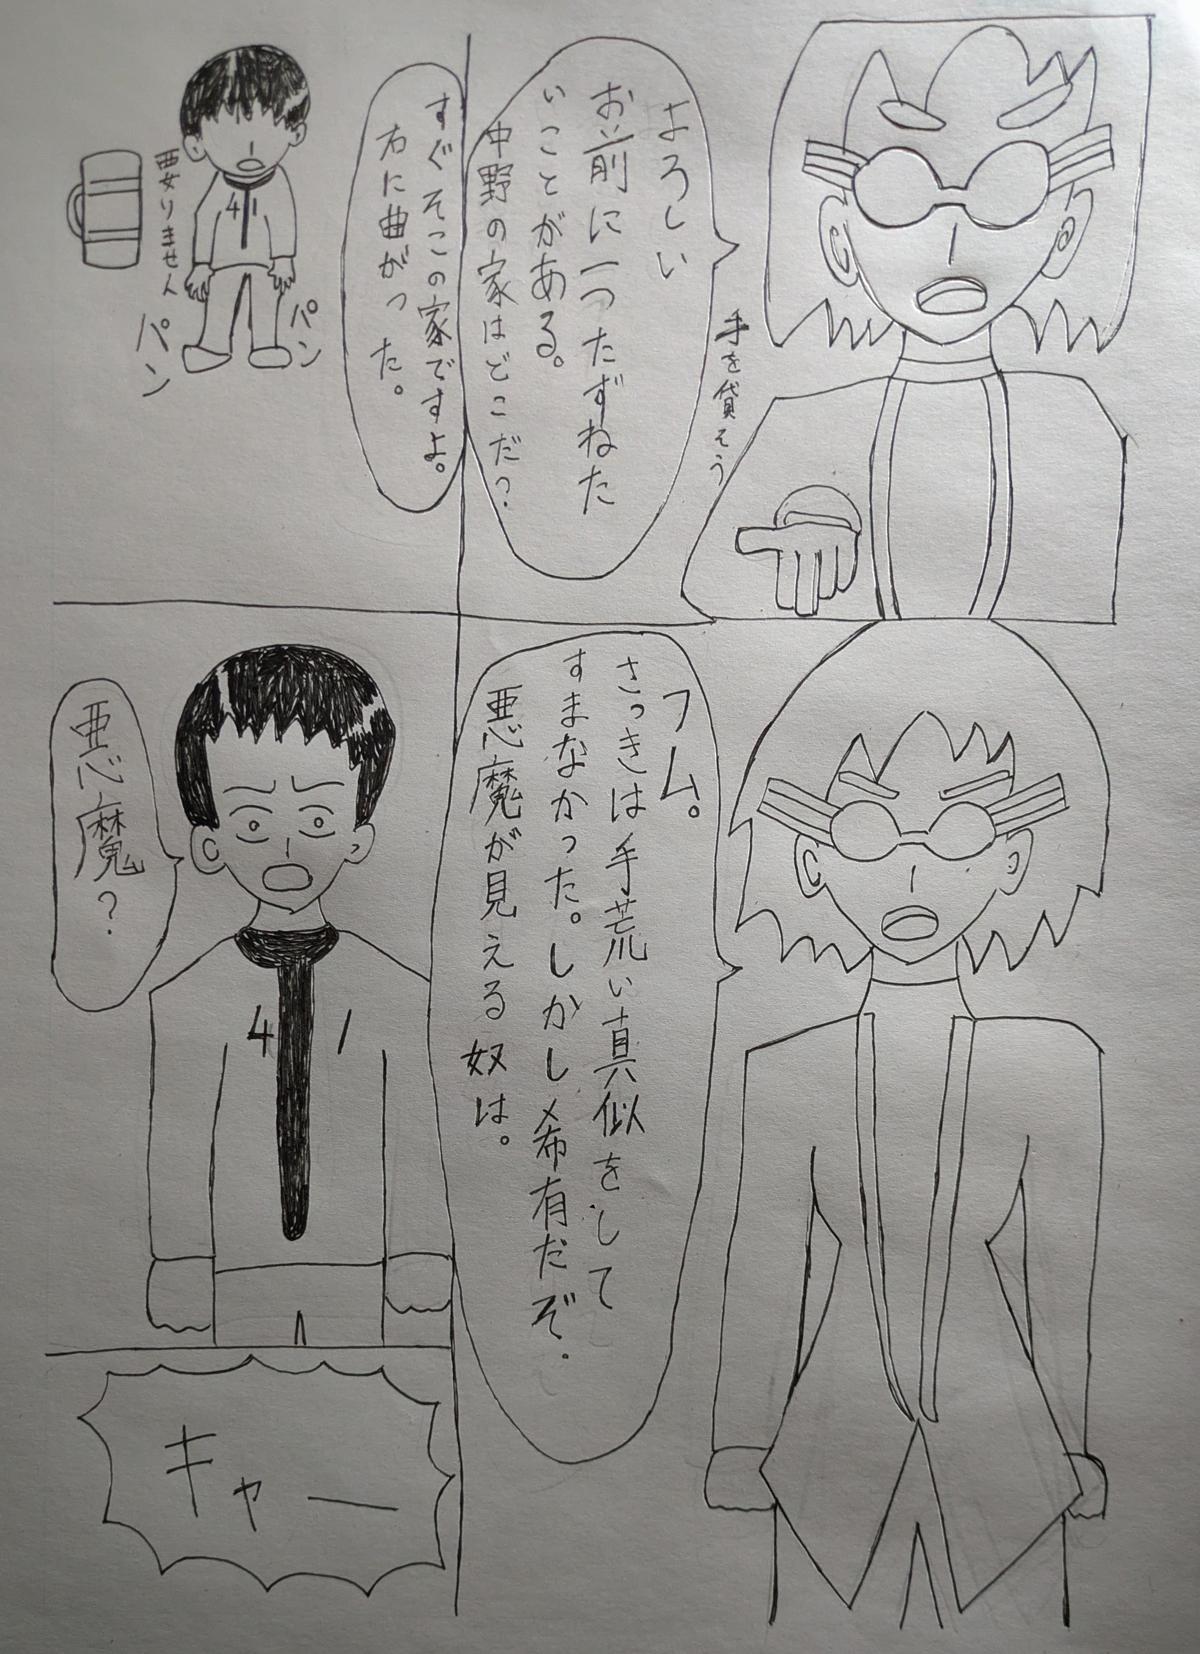 よろしい
お前に一つたずねた
いことがある。
中野の家はどこだ?
手を貸そう
すぐそこの家ですよ。
右に曲がった。
要りません
パン
パン
41
フム。
さっきは手荒い真似をして
すまなかった。しかし希有だぞ.
悪魔が見える奴は。
悪魔?
4 1
キャー